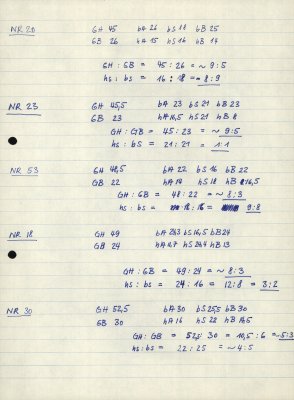 NR 20 GH 45 bA 26 bS 18 bB 25
GB 26 hA 15 hS 16 hB 17
GH : GB = 45 : 26 = ~ 9 : 5
hs : bs = 16 : 18 = 8 : 9
NR 23 GH 45,5 bA 23 bS 21 bB 23
GB 23 hA 16,5 hS 21 hB 8
GH : GB = 45 : 23 = ~ 9 : 5
hs : bs = 21 : 21 = 1 : 1
NR 53 GH 48,5 bA 22 bS 16 bB 22
GB 22 hA 19 hS 18 hB 16,5
GH : GB = 48 : 22 = ~ 8 : 3
hs : bs = 18 : 16 = 9 : 8
NR 18 GH 49 bA 24,5 bS 16,5 bB 24
GB 24 hA 17 hS 24,4 hB 13
GH : GB = 49 : 24 = ~ 8 : 3
hs : bs = 24 : 16 = 12 : 8 = 3 : 2
NR 30 GH 52,5 bA 30 bS 25,5 bB 30
GB 30 hA 16 hS 22 hB
GH : GB = 52,5 : 30 = 10,5 : 6 = ~ 5 : 3
hs : bs = 22 : 25 = ~ 4 : 5